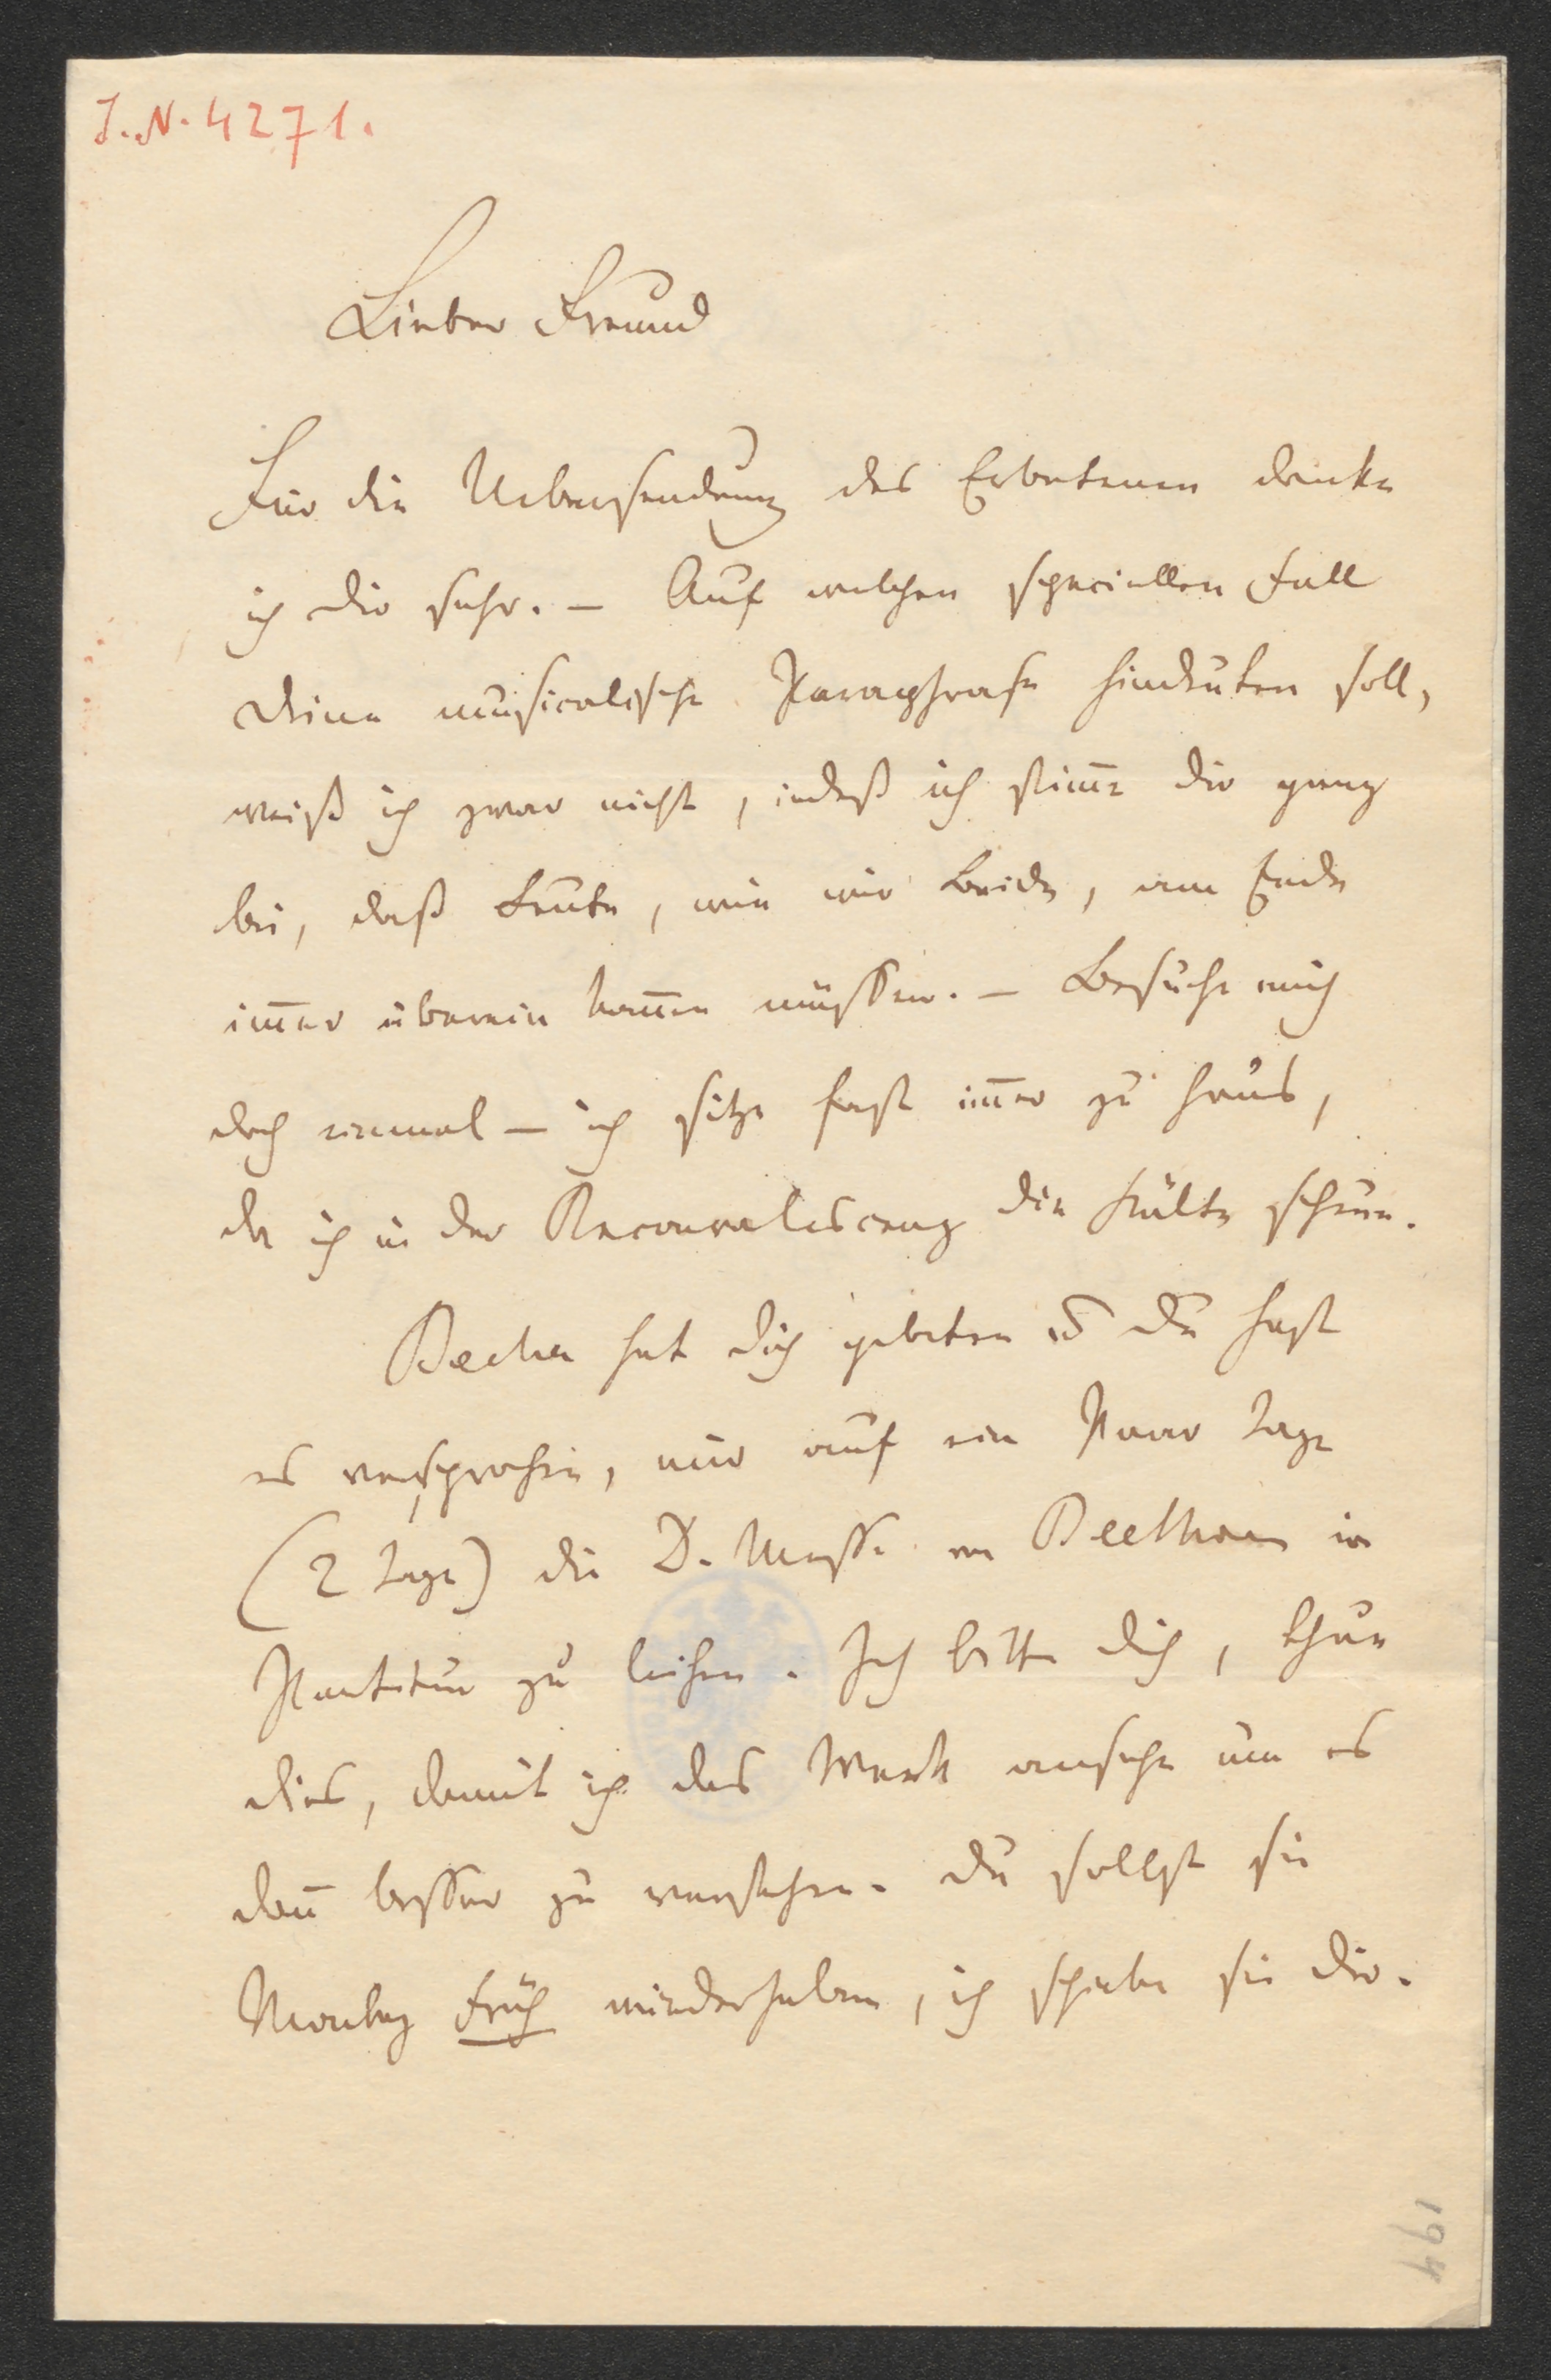 I.N. 4271.
Lieber Freund
Für die Uebersendung des Erbetenen danke
ich dir sehr. – Auf welchen speciellen Fall
deine musicalische Paraphrase hindeuten soll,
weiß ich zwar nicht, indeß ich stim̅e dir ganz
bei, daß Leute, wie wir Beide, am Ende
im̅er überein kom̅en müssen. – Besuche mich
doch einmal – ich sitze fast im̅er zu Haus,
da ich in der Reconvalescenz die Kälte scheue.
Becher hat dich gebeten u du hast
es versprochen, mir auf ein Paar Tage
(2 Tage) die D. Messe von Beethoven in
Partitur zu leihen. Ich bitte dich, thue
dies, damit ich das Werk ansehe um es
dan̅ besser zu verstehen. Du sollst sie
Montag früh wiederhaben, ich schicke sie dir.
194